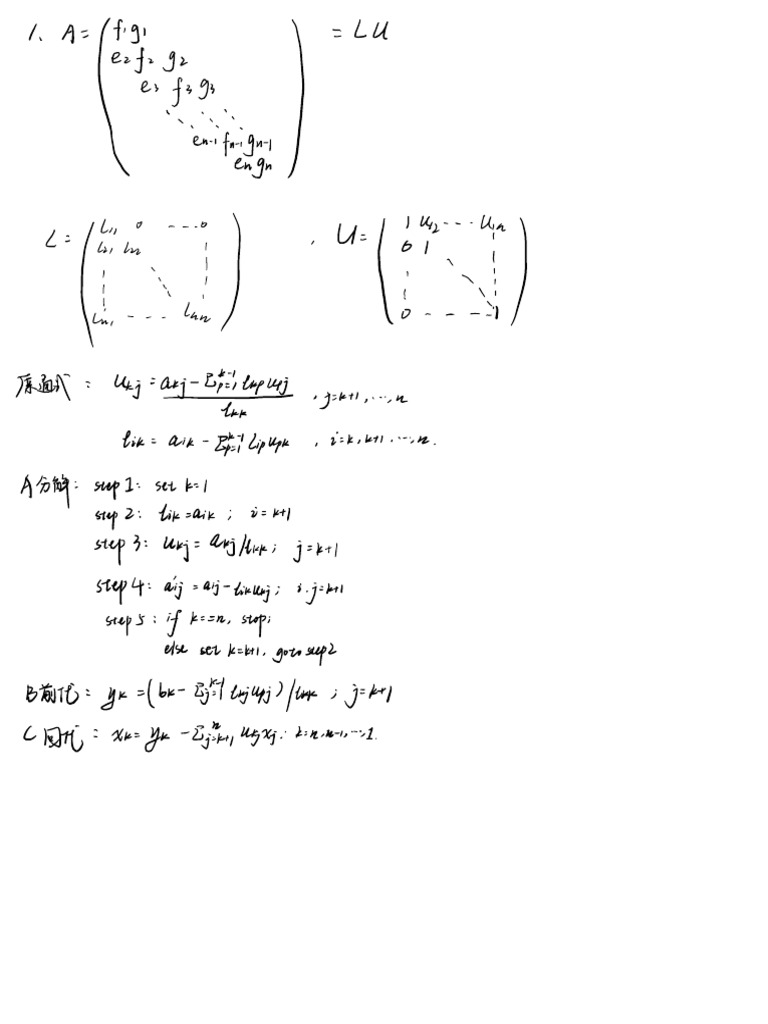 1、 A = ( f₁ g₁ ) = LU
e₂ f₂ g₂
e₃ f₃ g₃
eₙ₋₁ fₙ₋₁ gₙ₋₁
eₙ gₙ
L = ( l₁₁ 0 ---- 0 ) , U = ( 1 u₁₂ --- u₁ₙ )
l₂₁ l₂₂ 0 1
lₙ₁ ---- lₙₙ 0 ---- 1
原通式: uₖⱼ = (aₖⱼ - Σₚ₌₁ᵏ⁻¹ lₖₚuₚⱼ) / lₖₖ , j=k+1, ..., n
lᵢₖ = aᵢₖ - Σₚ₌₁ᵏ⁻¹ lᵢₚuₚₖ , i=k, k+1, ..., n.
A分解: step 1: set k=1
step 2: lᵢₖ = aᵢₖ ; i=k+1
step 3: uₖⱼ = aₖⱼ/lₖₖ; j=k+1
step 4: a'ᵢⱼ = aᵢⱼ - lᵢₖuₖⱼ; i.j=k+1
step 5: if k==n, stop;
else set k=k+1, goto step2
B前代: yₖ = (bₖ - Σⱼ₌₁ᵏ⁻¹ lₖⱼuₚⱼ)/lₖₖ ; j=k+1
C回代: xₖ = yₖ - Σⱼ₌ₖ₊₁ⁿ uₖⱼxⱼ. k=n,n-1,...,1.